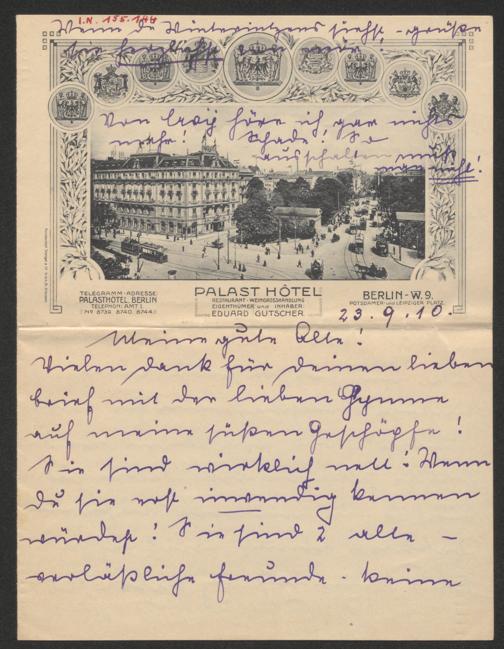 I.N. 155.144
Wenn du Winternitzens siehst – grüße
sie herzlichst von mir!
Von hör ich gar nichts
mehr! Schade! So
ausschalten muß
man nicht!
TELEGRAMM-ADRESSE:
PALASTHOTEL BERLIN
TELEPHON: AMT 1.
(No 8739. 8740. 8744.)
PALAST HÔTEL
RESTAURANT-WEINGROSSHANDLUNG
EIGENTHÜMER UND INHABER:
EDUARD GUTSCHER.
BERLIN-W.9.
POTSDAMER- und LEIPZIGER PLATZ.
23.9.10.
Meine gute Alte!
Vielen dank für deinen lieben
brief mit der lieben Hymne
auf meine süßen Geschöpfe!
Sie sind wirklich nett! Wenn
du sie erst inwendig kennen
würdest! Sie sind 2 alte –
verläßliche freunde – keine